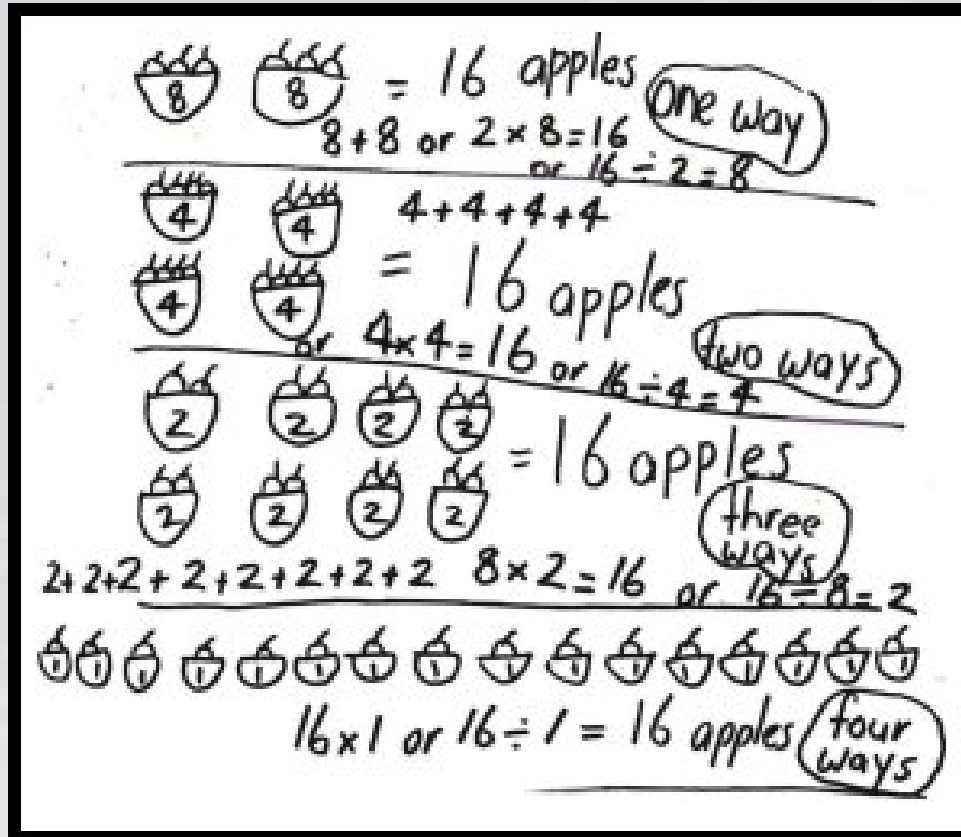 8 8 = 16 apples one way
8+8 or 2×8=16
or 16÷2=8
4 4 4+4+4+4
4 4 = 16 apples
or 4×4=16 or 16÷4=4 two ways
2 2 2 2 = 16 apples
2 2 2 2 three ways
2+2+2+2+2+2+2+2 8×2=16 or 16÷8=2
1 1 1 1 1 1 1 1 1 1 1 1 1 1 1 1
16×1 or 16÷1=16 apples four ways